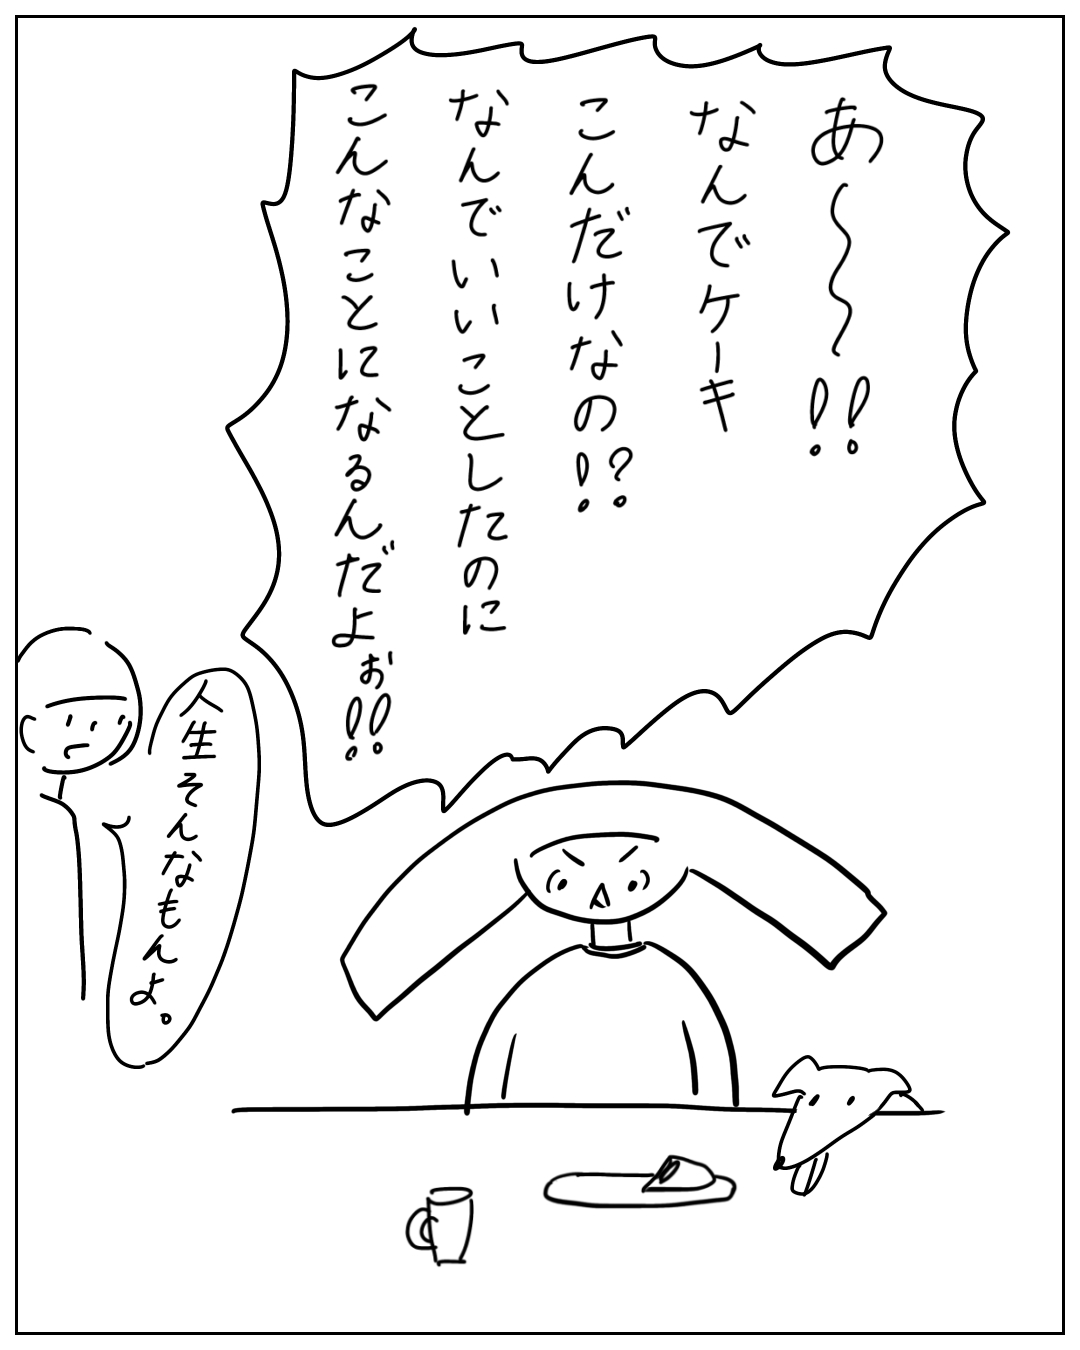 あ〜〜!!
なんでケーキ
こんだけなの!?
なんでいいことしたのに
こんなことになるんだよぉ!!
人生そんなもんよ。